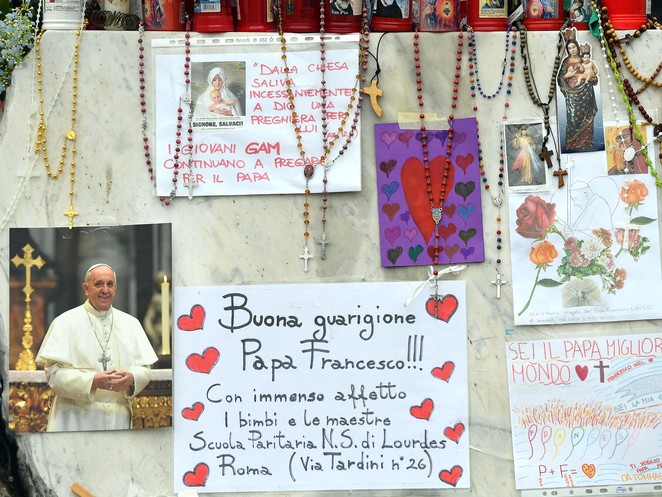 "DALLA CHIESA
SALIVA
INCESSANTEMENTE
A DIO UNA
PREGHIERA PER
LUI"
SIGNORE, SALVACI!
I GIOVANI GAM
CONTINUANO A PREGARE
PER IL PAPA
Buona guarigione
Papa Francesco!!!
Con immenso affetto
I bimbi e le maestre
Scuola Paritaria N.S. di Lourdes
Roma (Via Tardini n°26)
SEI IL PAPA MIGLIOR
MONDO
SEI LA MIA
P+F=
TI VOGLIO
DA TOMMA